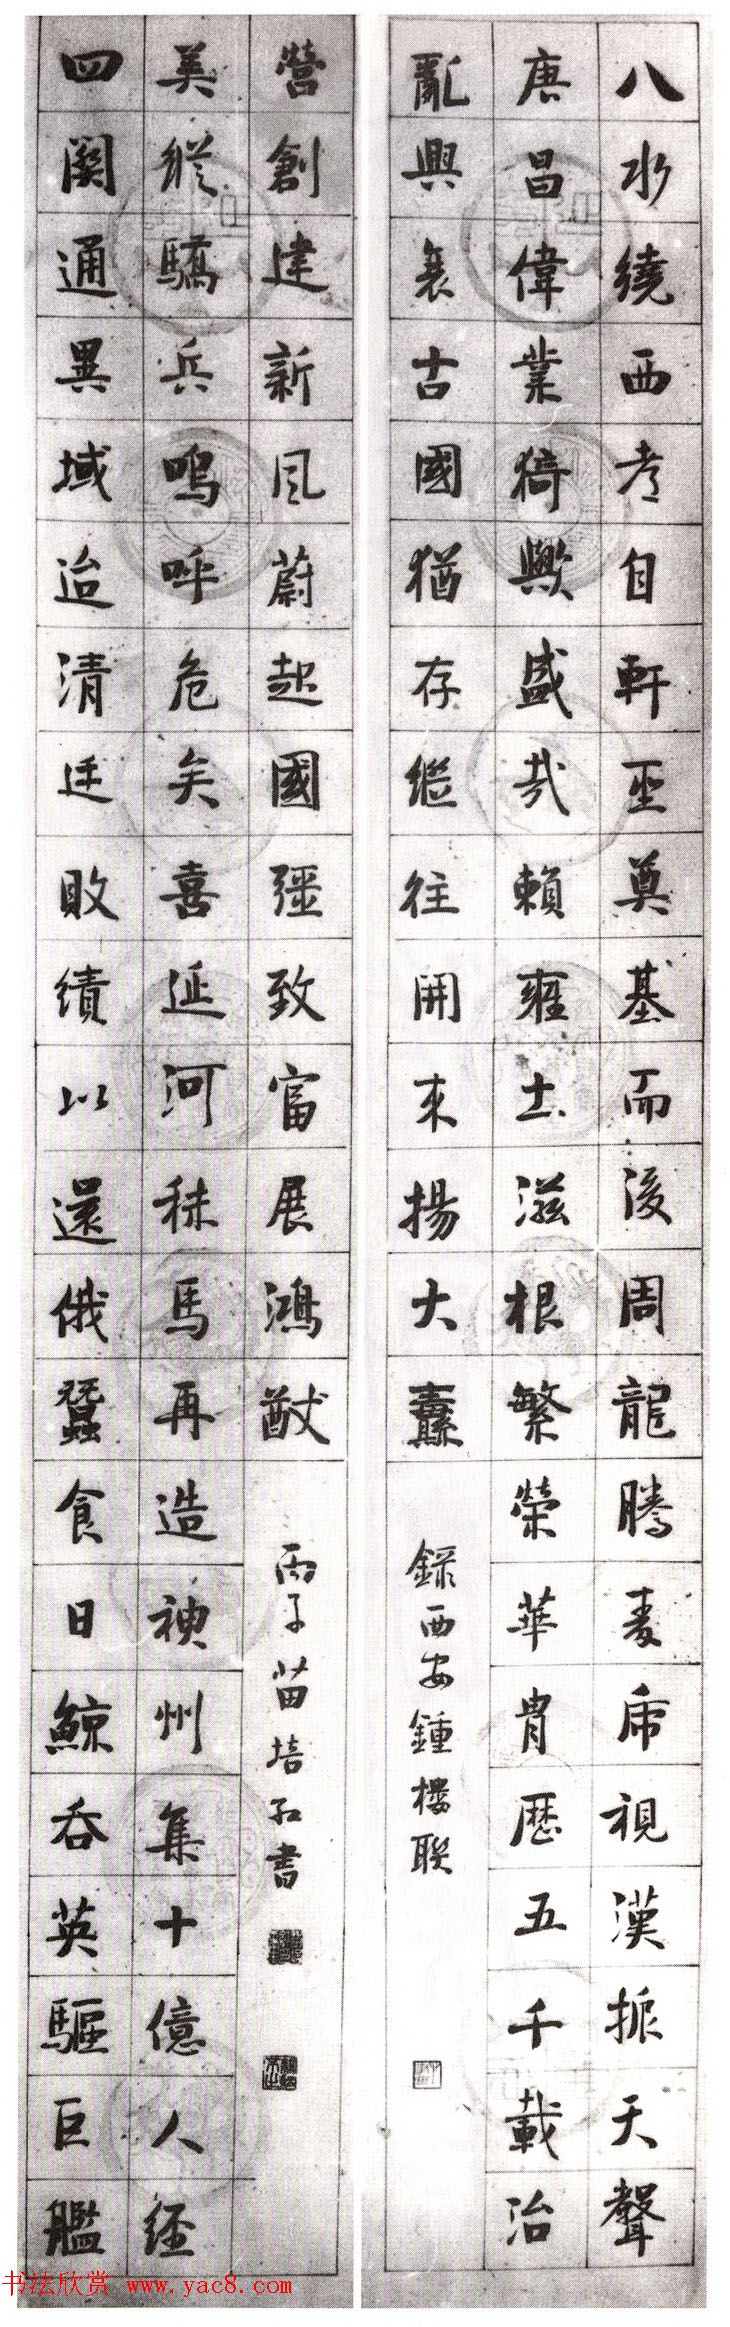 八水繞西考自軒圣奠基而後周龍騰秦虎視漢振天聲
唐昌偉業猗歟盛哉賴雍土滋根繁榮華胄歷五千載治
亂興衰古國猶存繼往開來揚大纛
錄西安鍾樓聯
四關通異域迨清廷敗績以還俄蠶食日鯨吞英驅巨艦
美縱驕兵嗚呼危矣喜延河秣馬再造神州集十億人經
營創建新風蔚起國彊致富展鴻猷
丙子苗培紅書
书法欣赏 www.yac8.com